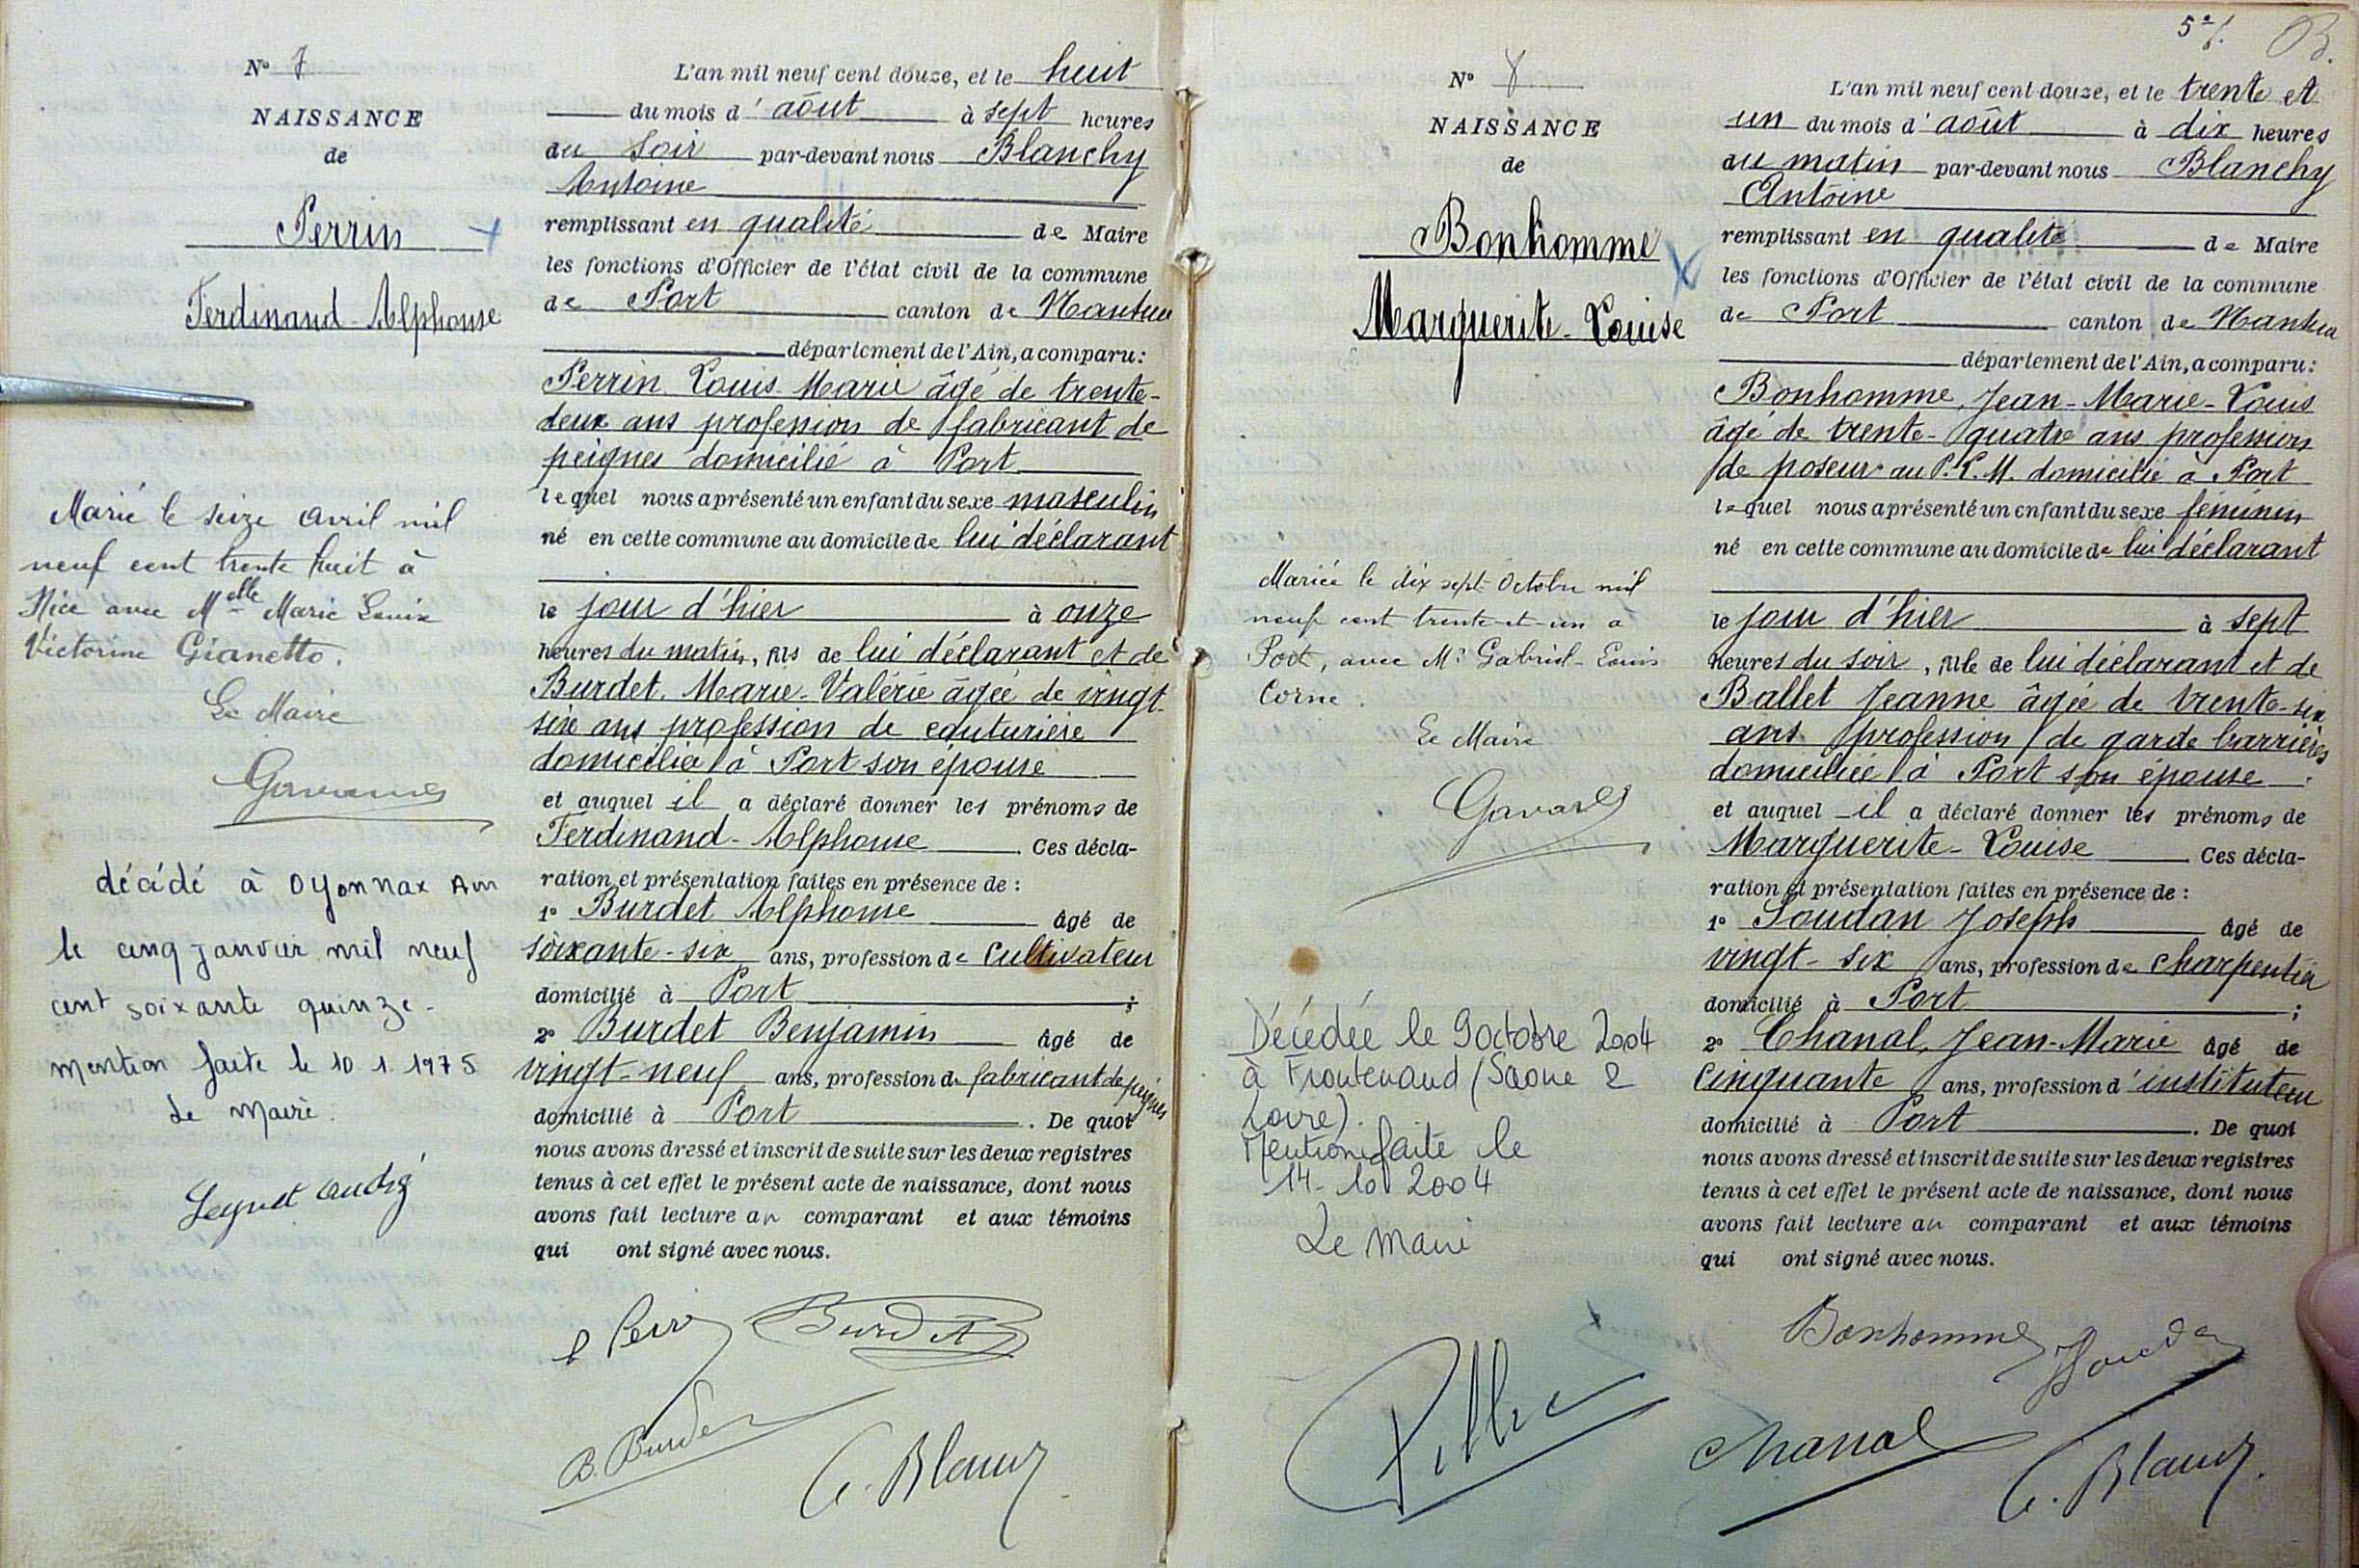 N° 7
NAISSANCE
de
Perrin
Ferdinand-Alphonse
Marié le seize Avril mil
neuf cent trente huit à
Nice avec Melle Marie Louise
Victorine Gianetto.
Le Maire
décédé à Oyonnax Ain
le cinq janvier mil neuf
cent soixante quinze -
mention faite le 10 1 1975
Le Maire.
L'an mil neuf cent douze, et le huit
du mois d'août à sept heures
du soir par-devant nous Blanchy
Antoine
remplissant en qualité de Maire
les fonctions d'Officier de l'état civil de la commune
de Port canton de Nantua
département de l'Ain, a comparu :
Perrin Louis Marie âgé de trente-
deux ans profession de fabricant de
peignes domicilié à Port
lequel nous a présenté un enfant du sexe masculin
né en cette commune au domicile de lui déclarant
le jour d'hier à onze
heures du matin, fils de lui déclarant et de
Burdet Marie-Valérie âgée de vingt-
six ans profession de couturière
domiciliée à Port son épouse
et auquel il a déclaré donner les prénoms de
Ferdinand-Alphonse. Ces décla-
ration et présentation faites en présence de :
1° Burdet Alphonse âgé de
soixante-six ans, profession de cultivateur
domicilié à Port ;
2° Burdet Benjamin âgé de
vingt-neuf ans, profession de fabricant de peignes
domicilié à Port. De quoi
nous avons dressé et inscrit de suite sur les deux registres
tenus à cet effet le présent acte de naissance, dont nous
avons fait lecture au comparant et aux témoins
qui ont signé avec nous.
Burdet
B. Burdet
N° 8
NAISSANCE
de
Bonhomme
Marguerite-Louise
Mariée le dix sept Octobre mil
neuf cent trente-et-un à
Port, avec Mr Gabriel-Louis
Corne.
Le Maire
Décédée le 9 octobre 2004
à Frontenaud (Saône &
Loire).
Mention faite le
14-10 2004
Le Maire
L'an mil neuf cent douze, et le trente et
un du mois d'août à dix heures
du matin par-devant nous Blanchy
Antoine
remplissant en qualité de Maire
les fonctions d'Officier de l'état civil de la commune
de Port canton de Nantua
département de l'Ain, a comparu :
Bonhomme, Jean-Marie-Louis
âgé de trente-quatre ans profession
de poseur au P.L.M. domicilié à Port
lequel nous a présenté un enfant du sexe féminin
né en cette commune au domicile de lui déclarant
le jour d'hier à sept
heures du soir, fille de lui déclarant et de
Ballet Jeanne âgée de trente-six
ans profession de garde barrières
domiciliée à Port son épouse
et auquel il a déclaré donner les prénoms de
Marguerite-Louise Ces décla-
ration et présentation faites en présence de :
1° Soudan Joseph âgé de
vingt-six ans, profession de charpentier
domicilié à Port ;
2° Chanal, Jean-Marie âgé de
cinquante ans, profession d'instituteur
domicilié à Port. De quoi
nous avons dressé et inscrit de suite sur les deux registres
tenus à cet effet le présent acte de naissance, dont nous
avons fait lecture au comparant et aux témoins
qui ont signé avec nous.
Bonhomme
Chanal